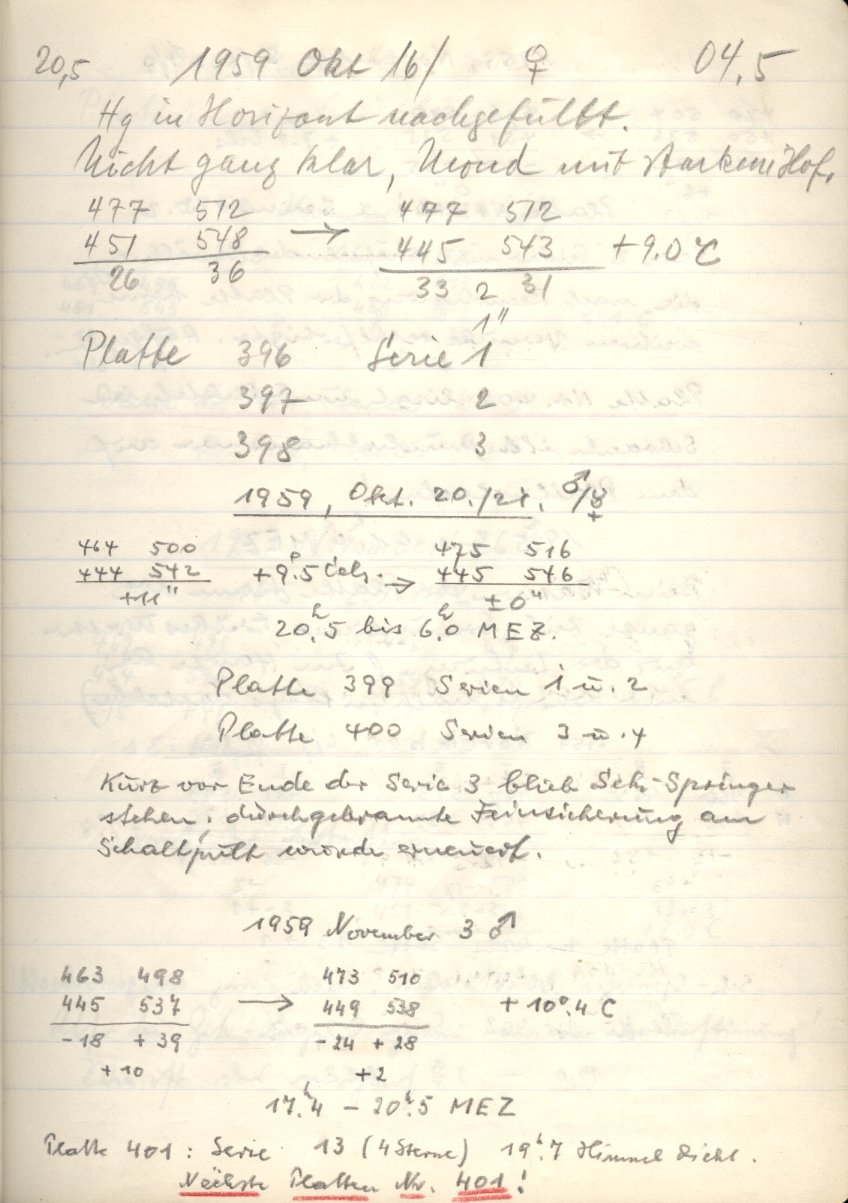 20,5 1959 Okt 16/ ♀ 04.5
Hg in Horizont nachgefüllt.
Nicht ganz klar, Mond mit starkem Hof.
477 512 477 512
451 548 → 445 543 +9.0 °C
26 36 33 2 31
1"
Platte 396 Serie 1
397 2
398 3
1959, Okt. 20./21. ♂/☿
464 500 475 516
444 542 +9°.5 Cels. → 445 546
+11" ±0"
20h,5 bis 6h,0 MEZ.
Platte 399 Serien 1 u. 2
Platte 400 Serien 3 u. 4
Kurz vor Ende der Serie 3 blieb Sek-Springer
stehen; durchgebrannte Feinsicherung am
Schaltpult wurde erneuert.
1959 November 3 ♂
463 498 473 510
445 537 → 449 538 + 10°.4 C
-18 + 39 -24 + 28
+ 10 +2
17h.4 - 20h.5 MEZ
Platte 401: Serie 13 (4 Sterne) 19h.7 Himmel dicht.
Nächste Platten Nr. 401!